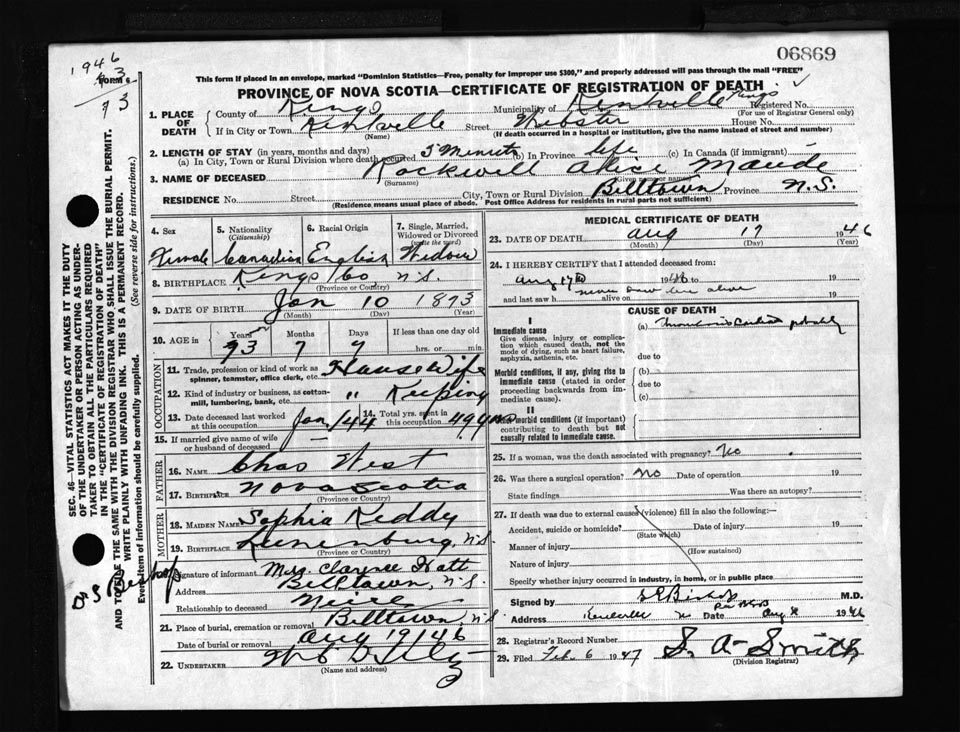 06869
1946
FORM 6
73
This form if placed in an envelope, marked "Dominion Statistics—Free, penalty for improper use $300," and properly addressed will pass through the mail "FREE"
PROVINCE OF NOVA SCOTIA—CERTIFICATE OF REGISTRATION OF DEATH
1. PLACE OF DEATH
County of Kings Municipality of Kentville Kings Registered No.
(For use of Registrar General only)
If in City or Town Kentville Street Webster House No.
(Name) (If death occurred in a hospital or institution, give the name instead of street and number)
2. LENGTH OF STAY (in years, months and days)
(a) In City, Town or Rural Division where death occurred 5 Minutes (b) In Province life (c) In Canada (if immigrant)
3. NAME OF DECEASED Rockwell Alice Maude
(Surname) (Given name or names)
RESIDENCE No. Street City, Town or Rural Division Billtown Province N.S.
(Residence means usual place of abode. Post Office Address for residents in rural parts not sufficient)
4. Sex 5. Nationality (Citizenship) 6. Racial Origin 7. Single, Married, Widowed or Divorced (write the word)
Female Canadian English Widow
8. BIRTHPLACE Kings Co N.S.
(Province or Country)
9. DATE OF BIRTH Jan 10 1873
(Month) (Day) (Year)
10. AGE in Years Months Days If less than one day old
73 7 7 hrs. or min.
OCCUPATION
11. Trade, profession or kind of work as spinner, teamster, office clerk, etc. House Wife
12. Kind of industry or business, as cotton-mill, lumbering, bank, etc. " Keeping
13. Date deceased last worked at this occupation Jan/44 14. Total yrs. spent in this occupation 49 yrs
15. If married give name of wife or husband of deceased —
FATHER
16. NAME Chas West
17. BIRTHPLACE Nova Scotia
(Province or Country)
MOTHER
18. MAIDEN NAME Sophia Keddy
19. BIRTHPLACE Lunenburg, N.S.
(Province or Country)
Signature of informant Mrs. Clarence Hatt
Address Billtown, N.S.
Relationship to deceased Neice
21. Place of burial, cremation or removal Billtown, N.S.
Date of burial or removal Aug 19/46
22. UNDERTAKER
(Name and address)
MEDICAL CERTIFICATE OF DEATH
23. DATE OF DEATH Aug 17 1946
(Month) (Day) (Year)
24. I HEREBY CERTIFY that I attended deceased from:
Aug 17th 1946 to 19
and last saw h alive on never saw her alive 19
CAUSE OF DEATH
I
Immediate cause
Give disease, injury or complication which caused death, not the mode of dying, such as heart failure, asphyxia, asthenia, etc.
(a) probably
due to
Morbid conditions, if any, giving rise to immediate cause (stated in order proceeding backwards from immediate cause).
(b)
due to
(c)
II
Other morbid conditions (if important) contributing to death but not causally related to immediate cause.
25. If a woman, was the death associated with pregnancy? No
26. Was there a surgical operation? No Date of operation 19
State findings Was there an autopsy?
27. If death was due to external causes (violence) fill in also the following:—
Accident, suicide or homicide? Date of injury 19
(State which)
Manner of injury
(How sustained)
Nature of injury
Specify whether injury occurred in industry, in home, or in public place
Signed by Bishop M.D.
Address Kentville Date Aug 1946
28. Registrar's Record Number
29. Filed Feb 6 1947 S. A. Smith
(Division Registrar)
SEC. 46—VITAL STATISTICS ACT MAKES IT THE DUTY
OF THE UNDERTAKER OR PERSON ACTING AS UNDER-
TAKER TO OBTAIN ALL THE PARTICULARS REQUIRED
IN THE "CERTIFICATE OF REGISTRATION OF DEATH"
AND TO FILE THE SAME WITH THE DIVISION REGISTRAR WHO SHALL ISSUE THE BURIAL PERMIT.
WRITE PLAINLY WITH UNFADING INK. THIS IS A PERMANENT RECORD.
Every item of information should be carefully supplied. (See reverse side for instructions.)
Bishop